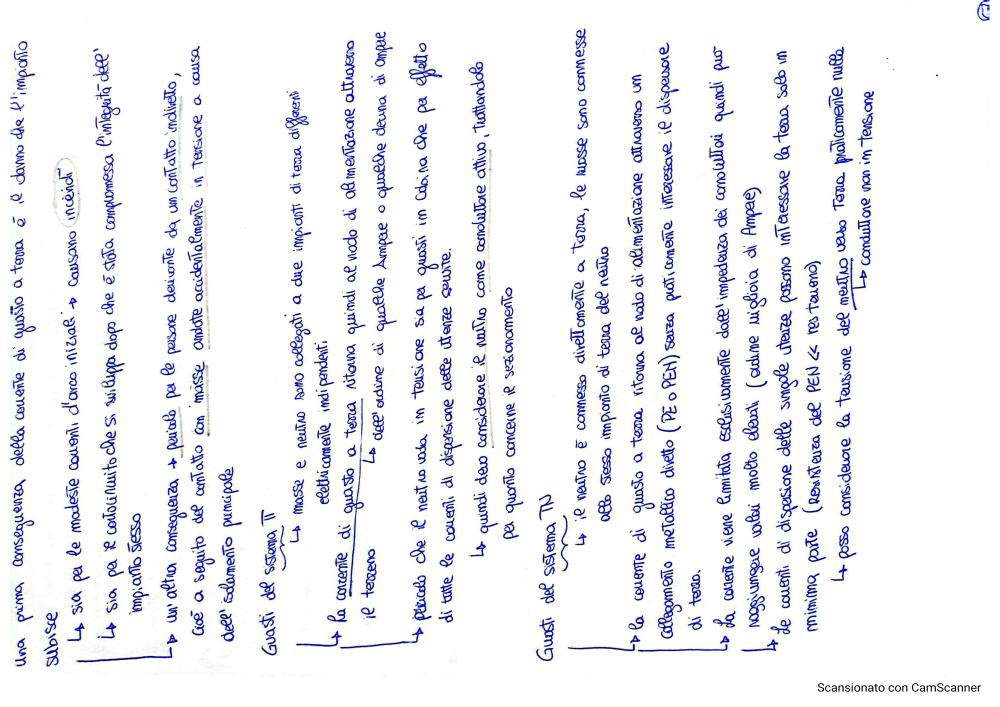 una prima conseguenza della corrente di guasto a terra è il danno che l'impianto
subisce
↳ sia per le modeste correnti d'arco iniziali → causano incendi
↳ sia per il cortocircuito che si sviluppa dopo che è stata compromessa l'integrità dell'
impianto stesso
↳ un'altra conseguenza → pericolo per le persone derivante da un contatto indiretto,
cioè a seguito del contatto con masse andate accidentalmente in tensione a causa
dell'isolamento principale
Guasti del sistema TT
↳ masse e neutro sono collegati a due impianti di terra differenti
elettricamente indipendenti.
↳ la corrente di guasto a terra ritorna quindi al nodo di alimentazione attraverso
il terreno
↳ dell'ordine di qualche Ampere o qualche decina di Ampere
↳ pericolo che il neutro vada in tensione sia per guasti in cabina che per effetto
di tutte le correnti di dispersione delle utenze servite.
↳ quindi devo considerare il neutro come conduttore attivo, trattandolo
per quanto concerne il sezionamento
Guasti del sistema TN
↳ il neutro è connesso direttamente a terra, le masse sono connesse
allo stesso impianto di terra del neutro
↳ la corrente di guasto a terra ritorna al nodo di alimentazione attraverso un
collegamento metallico diretto (PE o PEN) senza praticamente interessare il dispersore
di terra.
↳ La corrente viene limitata esclusivamente dall'impedenza dei conduttori quindi può
raggiungere valori molto elevati (ordine migliaia di Ampere)
↳ Le correnti di dispersione delle singole utenze possono interessare la terra solo in
minima parte (resistenza del PEN << res terreno)
↳ posso considerare la tensione del neutro verso terra praticamente nulla
↳ conduttore non in tensione
Scansionato con CamScanner